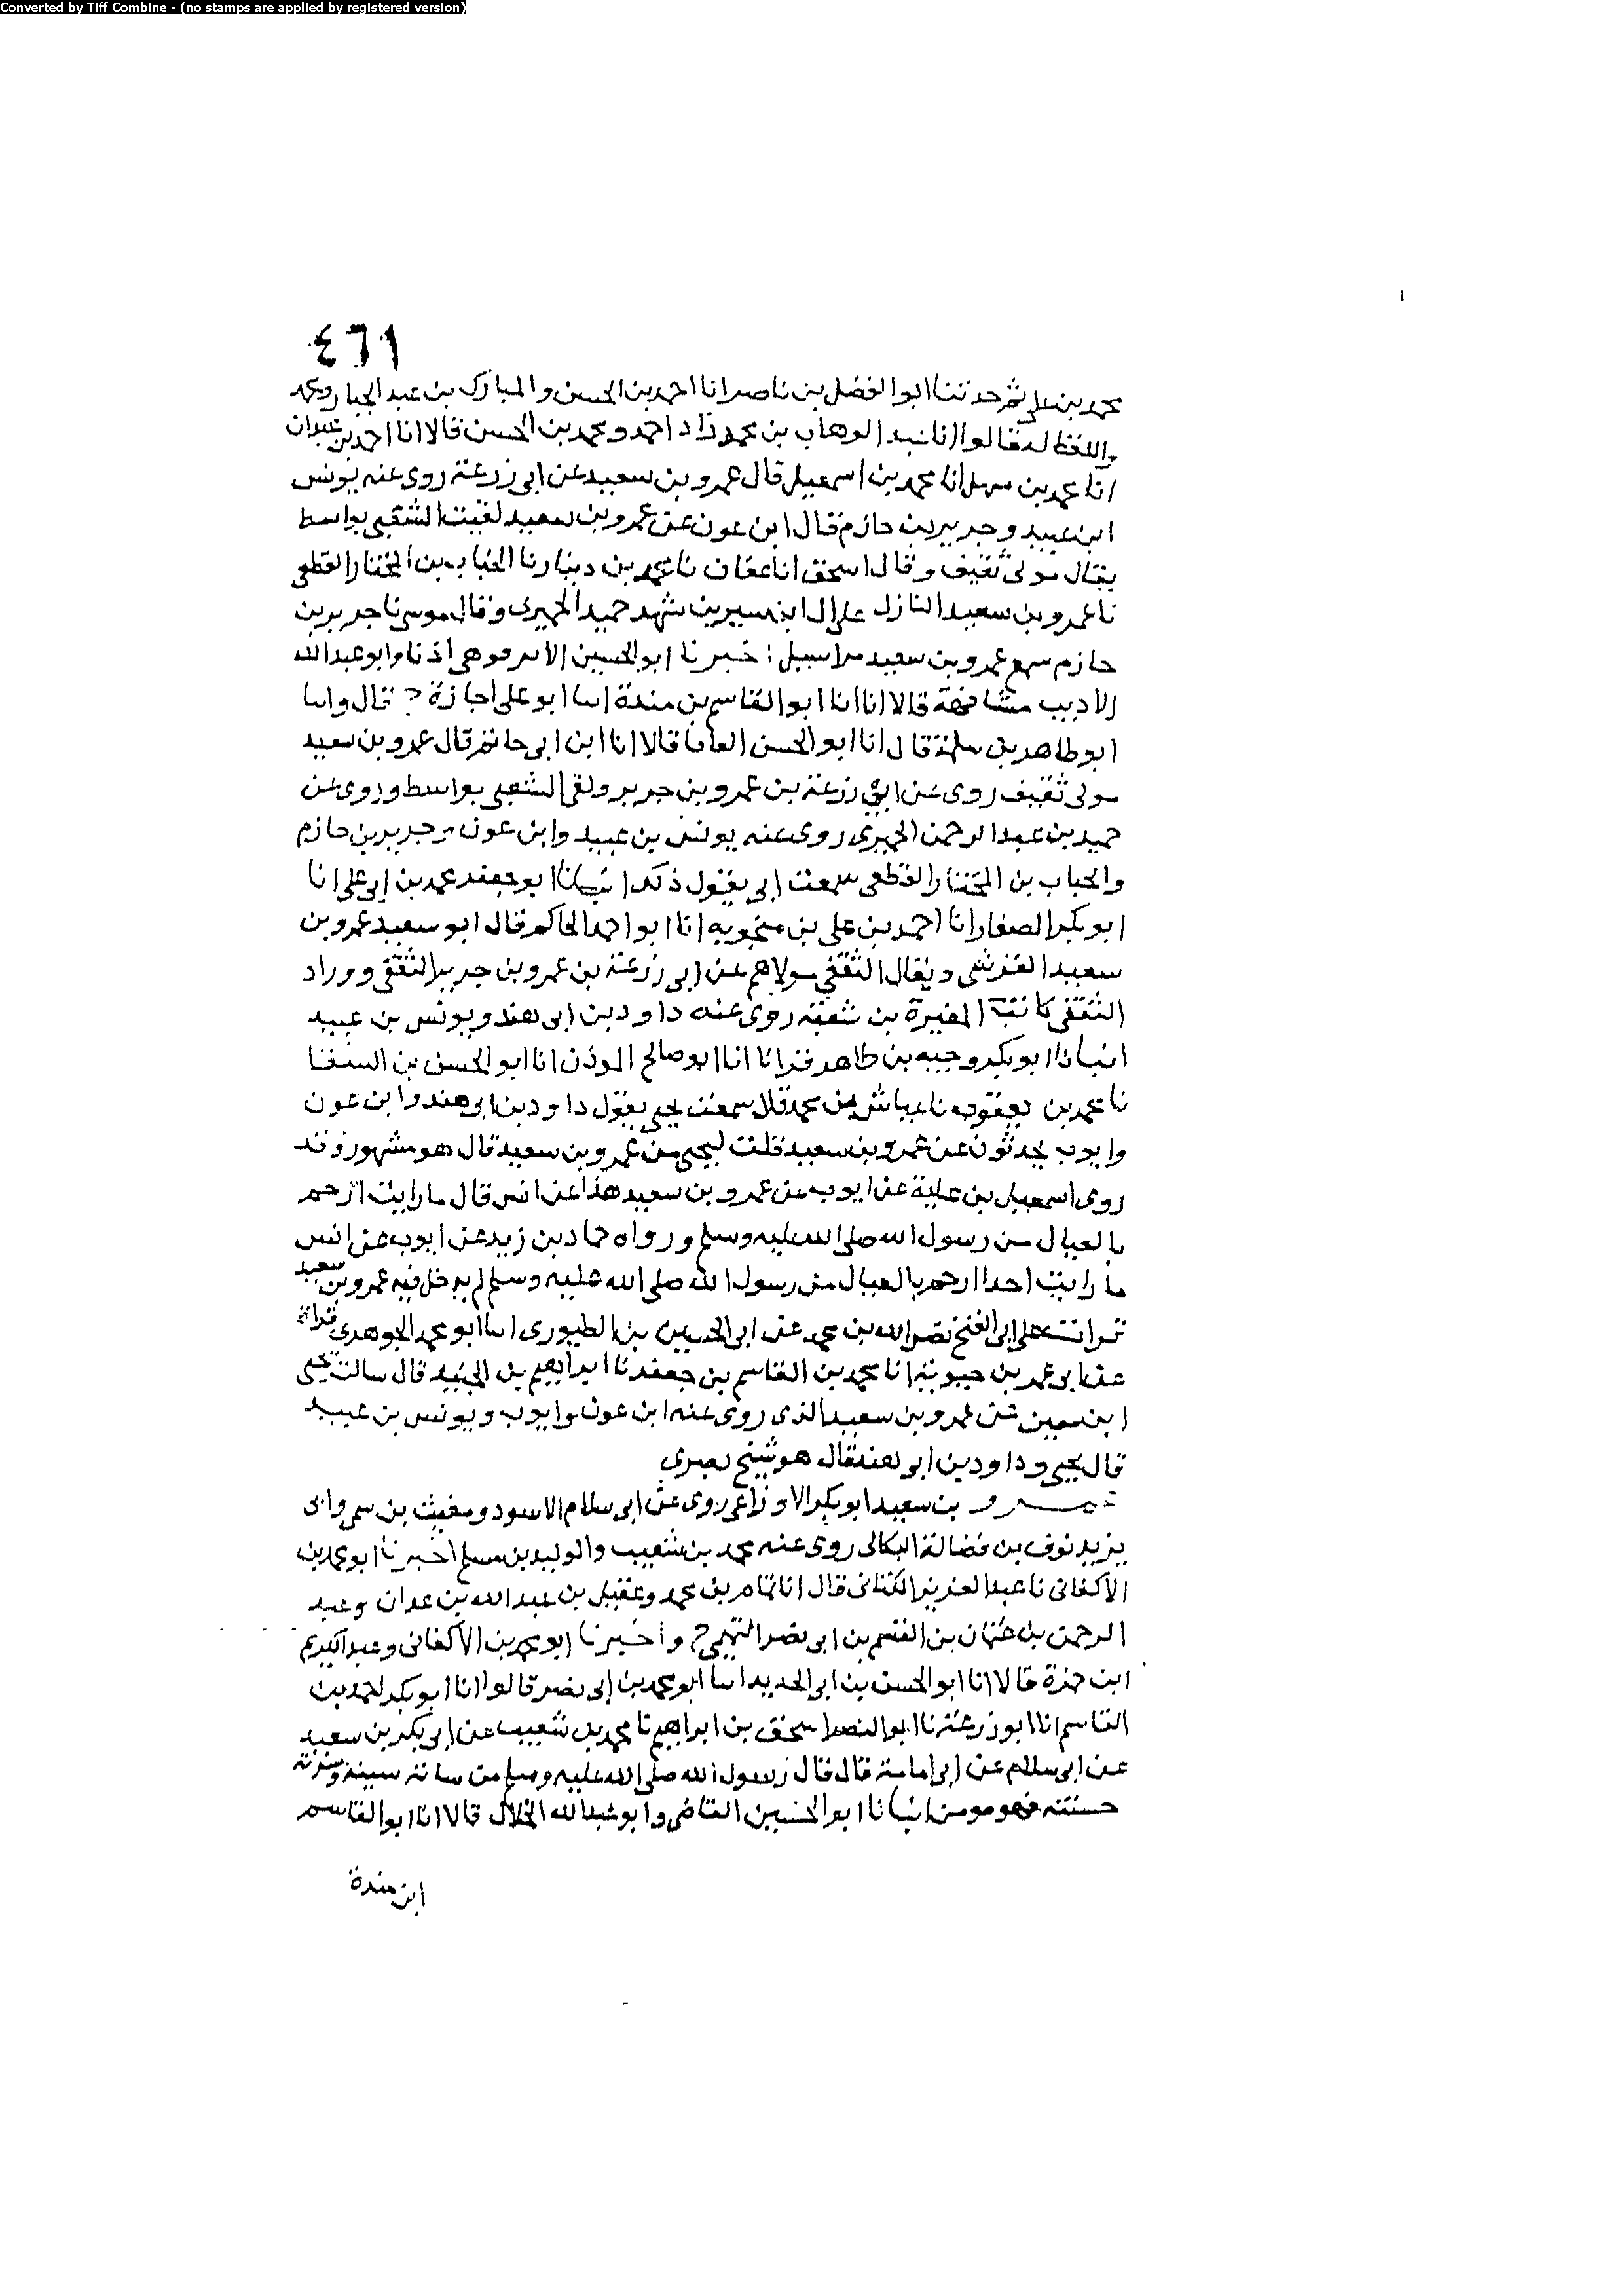 Converted by Tiff Combine - (no stamps are applied by registered version)
٤٦١
محمد بن علي ثم حدثنا ابو الفضل بن ناصر انا احمد بن الحسن والمبارك بن عبد الجبار ومحمد
واللفظ له قالوا انا عبد الوهاب بن محمد زاد احمد ومحمد بن الحسن قالا انا احمد بن عبدان
انا محمد بن سهل انا محمد بن اسمعيل قال عمرو بن سعيد عن ابي زرعة روى عنه يونس
ابن عبيد وجرير بن حازم قال ابن عون عن عمرو بن سعيد لقيت الشعبي بواسط
يقال مولى ثقيف وقال اسحق انا عفان نا محمد بن دينار نا الحباب بن المختار القطعي
نا عمرو بن سعيد النازل على ال ابن سيرين شهد حميد الحميري وقال موسى نا جرير بن
حازم سمع عمرو بن سعيد مراسيل اخبرنا ابو الحسين الابرقوهي اذنا وابو عبد الله
الاديب مشافهة قالا انا انا ابو القاسم بن مندة انا ابو علي اجازة ح قال وانا
ابو طاهر بن سلمة قال انا ابو الحسن الفافا قالا انا ابن ابي حاتم قال عمرو بن سعيد
مولى ثقيف روى عن ابي زرعة بن عمرو بن جرير ولقي الشعبي بواسط وروى عن
حميد بن عبد الرحمن الحميري روى عنه يونس بن عبيد وابن عون وجرير بن حازم
والحباب بن المختار القطعي سمعت ابي يقول ذلك انبانا ابو جعفر محمد بن ابي علي انا
ابو بكر الصفار انا احمد بن علي بن منجويه انا ابو احمد الحاكم قال ابو سعيد عمرو بن
سعيد القرشي ويقال الثقفي مولاهم عن ابي زرعة بن عمرو بن جرير الثقفي ووراد
الثقفي كاتب المغيرة بن شعبة روى عنه داود بن ابي هند ويونس بن عبيد
انبانا ابو بكر وجيه بن طاهر قرانا انا ابو صالح المؤذن انا ابو الحسن بن السقا
نا محمد بن يعقوب نا عباس بن محمد قال سمعت يحيى يقول داود بن ابي هند وابن عون
وايوب يحدثون عن عمرو بن سعيد قلت ليحيى من عمرو بن سعيد قال هو مشهور وقد
روى اسمعيل بن علية عن ايوب عن عمرو بن سعيد هذا عن انس قال ما رايت ارحم
بالعيال من رسول الله صلى الله عليه وسلم ورواه حماد بن زيد عن ايوب عن انس
ما رايت احدا ارحم بالعيال من رسول الله صلى الله عليه وسلم لم يدخل فيه عمرو بن سعيد
قرات على ابي الفتح نصر الله بن محمد عن ابي الحسين بن الطيوري انا ابو محمد الجوهري قراة
عن ابي عمر بن حيوية انا محمد بن القاسم بن جعفر نا ابراهيم بن الجنيد قال سالت يحيى
ابن معين عن عمرو بن سعيد الذي روى عنه ابن عون وايوب ويونس بن عبيد
قال يحيى وداود بن ابي هند فقال هو شيخ بصري
عمرو بن سعيد ابو بكر الاوزاعي روى عن ابي سلام الاسود ومغيث بن سمي وابي
يزيد نوف بن فضالة البكالي روى عنه محمد بن شعيب والوليد بن مسلم اخبرنا ابو محمد بن
الاكفاني نا عبد العزيز الكتاني قال انا تمام بن محمد وعقيل بن عبيد الله بن عبدان وعبد
الرحمن بن عثمان بن القسم بن ابي نصر التميمي ح واخبرنا ابو محمد بن الاكفاني وعبد الكريم
ابن حمزة قالا انا ابو الحسن بن ابي الحديد انا ابو محمد بن ابي نصر قالوا انا ابو بكر احمد بن
القاسم انا ابو زرعة نا ابو النضر اسحق بن ابراهيم نا محمد بن شعيب عن ابي بكر بن سعيد
عن ابي سلام عن ابي امامة قال قال رسول الله صلى الله عليه وسلم من ساته سيئة وسرته
حسنته فهو مومن انبانا ابو الحسين القاضي وابو عبد الله الخلال قالا انا ابو القاسم
ابن مندة